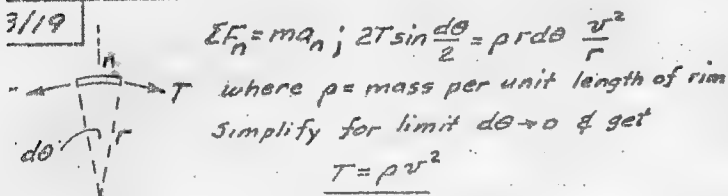 3/19
ΣFₙ = maₙ ; 2T sin dθ/2 = ρ r dθ v²/r
n
T where ρ = mass per unit length of rim
r
Simplify for limit dθ→0 & get
dθ
T = ρv²